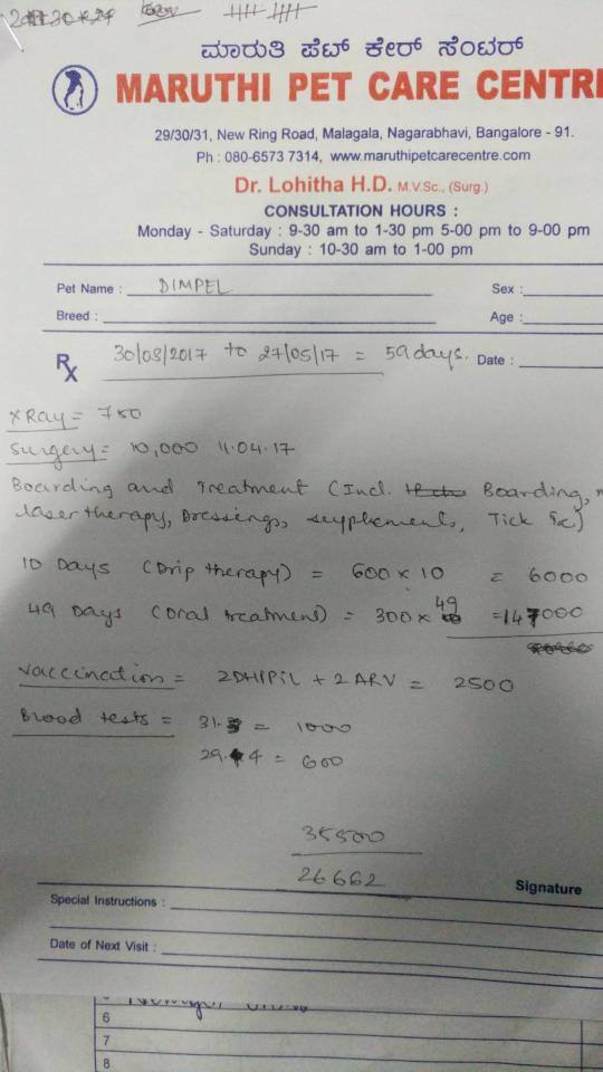 ಮಾರುತಿ ಪೆಟ್ ಕೇರ್ ಸೆಂಟರ್
MARUTHI PET CARE CENTRE
29/30/31, New Ring Road, Malagala, Nagarabhavi, Bangalore - 91.
Ph : 080-6573 7314, www.maruthipetcarecentre.com
Dr. Lohitha H.D. M.V.Sc., (Surg.)
CONSULTATION HOURS :
Monday - Saturday : 9-30 am to 1-30 pm 5-00 pm to 9-00 pm
Sunday : 10-30 am to 1-00 pm
Pet Name : DIMPEL Sex :
Breed : Age :
Rx 30/03/2017 to 27/05/17 = 59 days. Date :
XRay = 750
Surgery = 10,000 11.04.17
Boarding and Treatment (Incl. Boarding,
laser therapy, Dressings, supplements, Tick
10 Days (Drip therapy) = 600 x 10 = 6000
49 Days (Oral treatment) = 300 x 49 = 147000
Vaccination = 2DHPPiL + 2 ARV = 2500
Blood tests = 31.3 = 1000
29.4 = 600
35500
26662
Signature
Special Instructions :
Date of Next Visit :
6
7
8